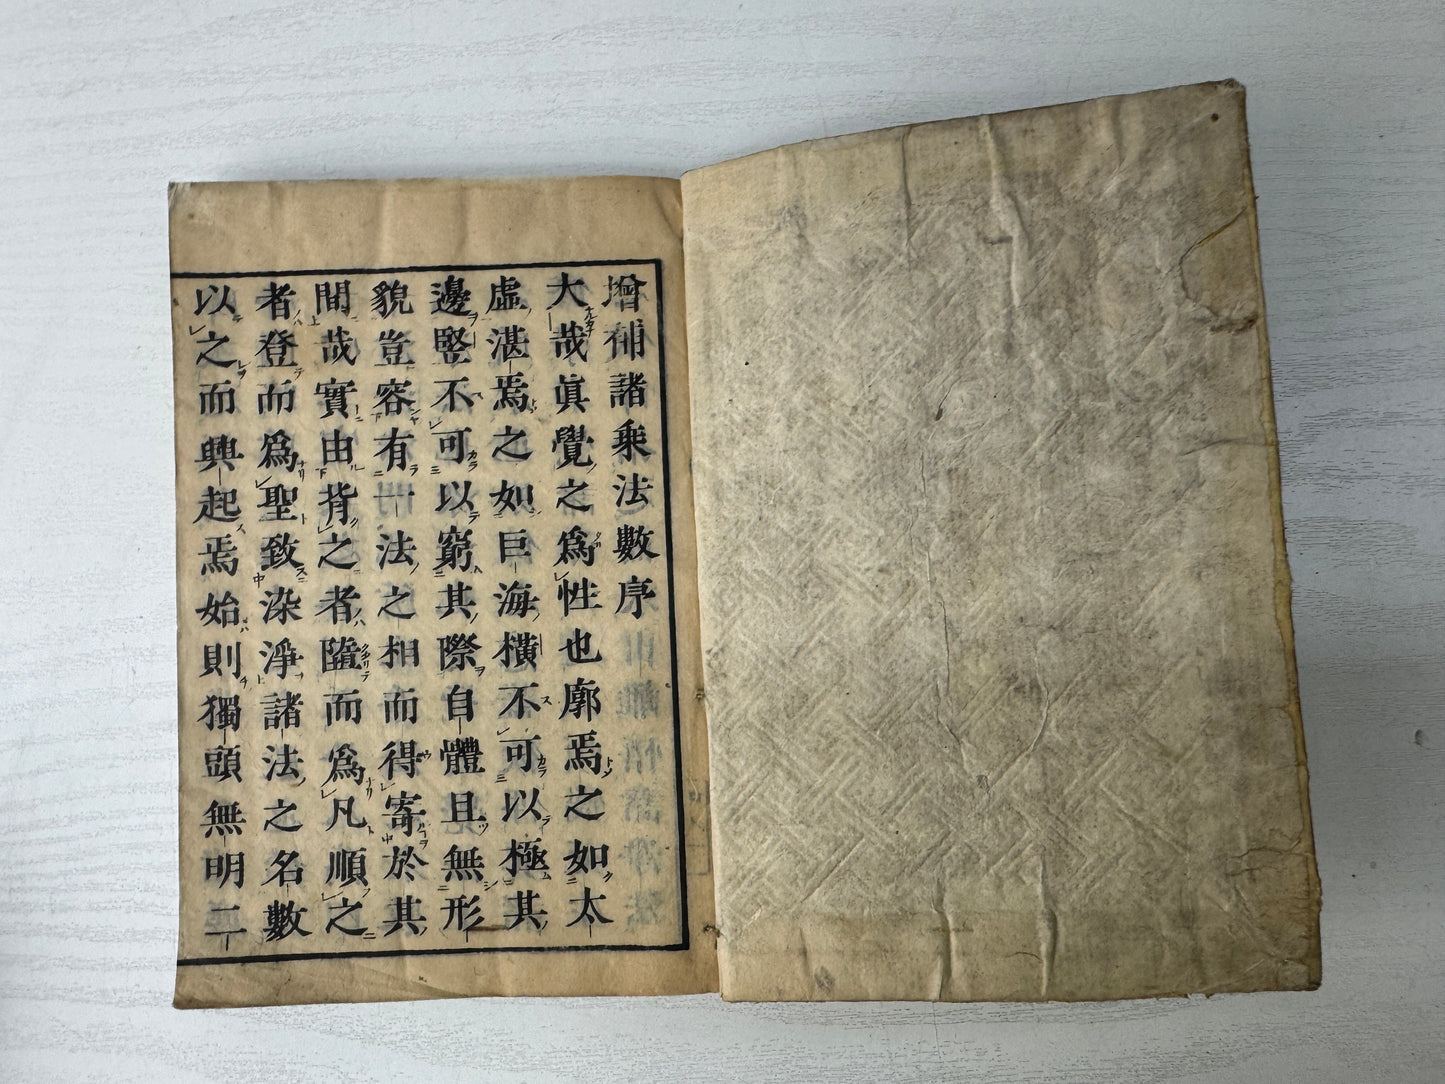 增補諸乘法數序
大哉眞覺之爲性也廓焉之如太
虛湛焉之如巨海橫不可以極其
邊竪不可以窮其際自體且無形
貌豈容有一法之相而得寄於其
間哉實由背之者墮而爲凡順之
者登而爲聖致染淨諸法之名數
以之而興起焉始則獨頭無明二